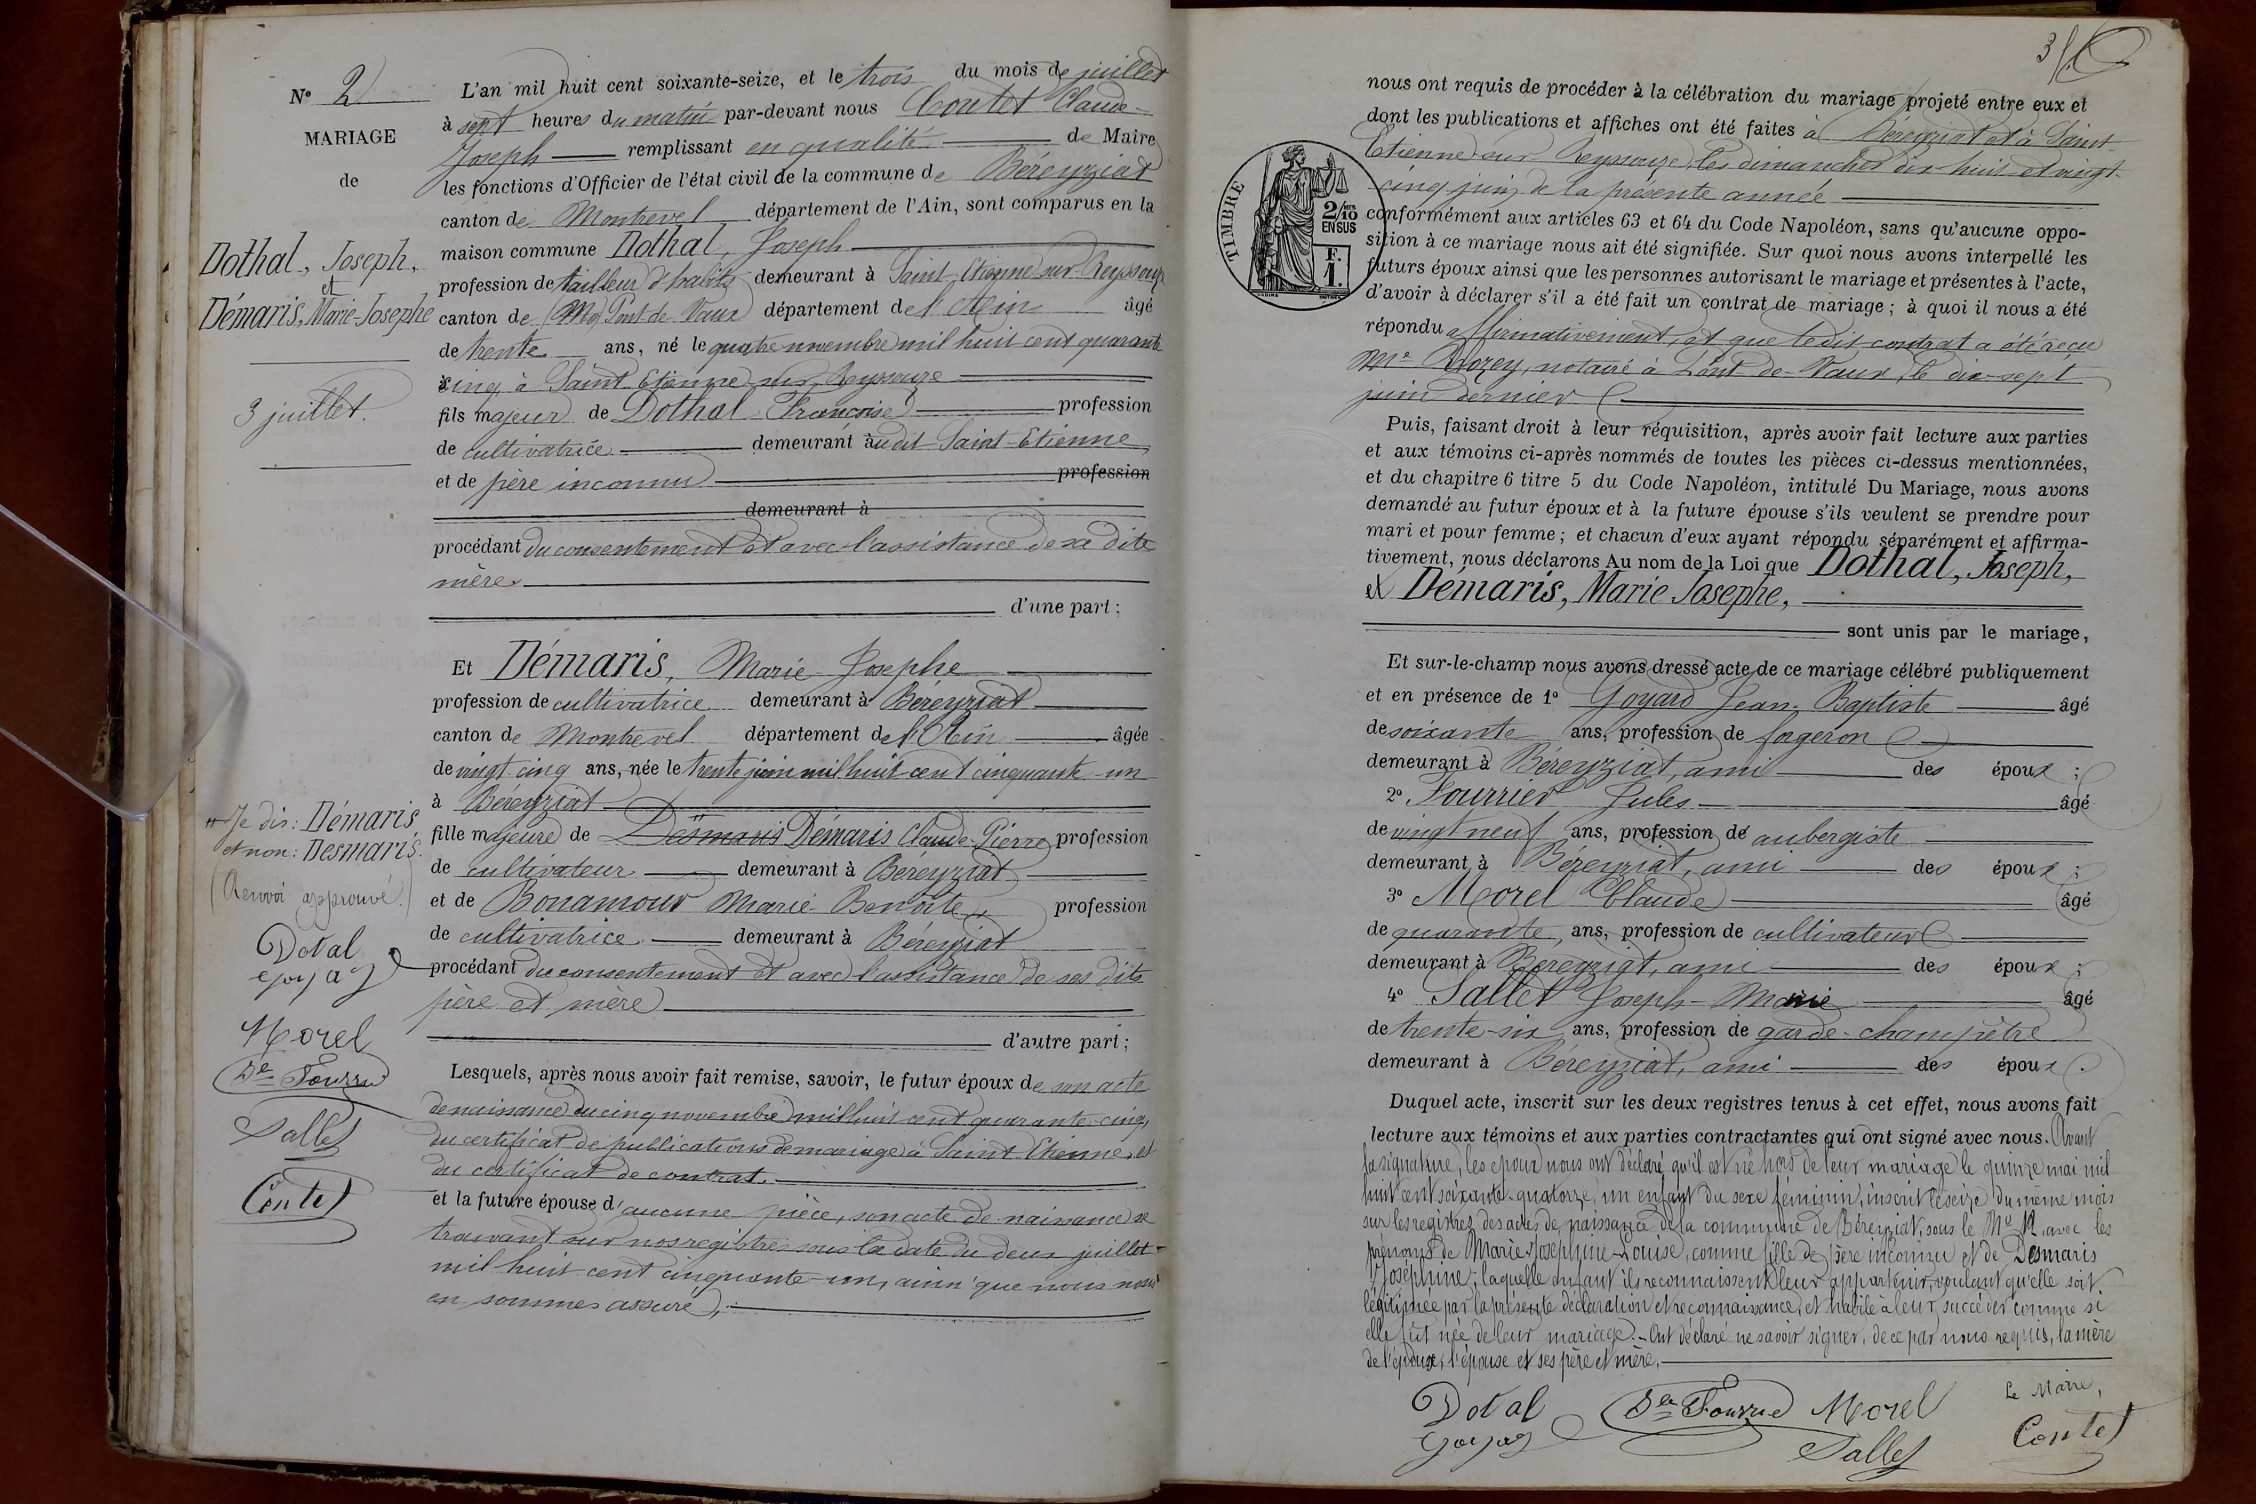 N° 2
MARIAGE
de
Dothal, Joseph,
et
Démaris, Marie-Josephe
3 juillet.
L'an mil huit cent soixante-seize, et le trois du mois de juillet
à sept heures du matin par-devant nous Contet Claude-
Joseph remplissant en qualité de Maire
les fonctions d'Officier de l'état civil de la commune de Béreyziat
canton de Montrevel département de l'Ain, sont comparus en la
maison commune Dothal, Joseph
profession de tailleur d'habits demeurant à Saint-Etienne-sur-Reyssouze
canton de Pont-de-Vaux département de l'Ain âgé
de trente ans, né le quatre novembre mil huit cent quarante
cinq à Saint-Etienne-sur-Reyssouze
fils majeur de Dothal Françoise profession
de cultivatrice demeurant audit Saint-Etienne
et de père inconnu profession
demeurant à
procédant du consentement et avec l'assistance de sa dite
mère
d'une part ;
Et Démaris, Marie Josephe
profession de cultivatrice demeurant à Béreyziat
canton de Montrevel département de l'Ain âgée
de vingt-cinq ans, née le trente juin mil huit cent cinquante-un
à Béreyziat
fille majeure de Desmaris Démaris Claude-Pierre profession
de cultivateur demeurant à Béreyziat
et de Bonamour Marie-Benoite profession
de cultivatrice demeurant à Béreyziat
procédant du consentement et avec l'assistance de ses dits
père et mère
d'autre part ;
Lesquels, après nous avoir fait remise, savoir, le futur époux de son acte
de naissance du cinq novembre mil huit cent quarante-cinq,
du certificat de publications de mariage à Saint-Etienne, et
du certificat de contrat.
et la future épouse d'aucune pièce, son acte de naissance se
trouvant sur nos registres sous la date du deux juillet
mil huit cent cinquante-un, ainsi que nous nous
en sommes assuré,
Je dis : Démaris
et non : Desmaris.
(Renvoi approuvé.)
Dotal
Goyaz
Morel
Salle
Contet
nous ont requis de procéder à la célébration du mariage projeté entre eux et
dont les publications et affiches ont été faites à Béreyziat et à Saint-
Etienne-sur-Reyssouze, les dimanches dix-huit et vingt-
cinq juin de la présente année
TIMBRE
2/10
EN SUS
F.
1.
conformément aux articles 63 et 64 du Code Napoléon, sans qu'aucune oppo-
sition à ce mariage nous ait été signifiée. Sur quoi nous avons interpellé les
futurs époux ainsi que les personnes autorisant le mariage et présentes à l'acte,
d'avoir à déclarer s'il a été fait un contrat de mariage ; à quoi il nous a été
répondu affirmativement, et que ledit contrat a été reçu
Me notaire à Pont-de-Vaux, le dix-sept
juin dernier
Puis, faisant droit à leur réquisition, après avoir fait lecture aux parties
et aux témoins ci-après nommés de toutes les pièces ci-dessus mentionnées,
et du chapitre 6 titre 5 du Code Napoléon, intitulé Du Mariage, nous avons
demandé au futur époux et à la future épouse s'ils veulent se prendre pour
mari et pour femme ; et chacun d'eux ayant répondu séparément et affirma-
tivement, nous déclarons Au nom de la Loi que Dothal, Joseph,
et Démaris, Marie Josephe,
sont unis par le mariage,
Et sur-le-champ nous avons dressé acte de ce mariage célébré publiquement
et en présence de 1° Goyard Jean-Baptiste âgé
de soixante ans, profession de forgeron
demeurant à Béreyziat, ami des époux ;
2° Fourrier Jules âgé
de vingt neuf ans, profession de aubergiste
demeurant à Béreyziat, ami des époux ;
3° Morel Claude âgé
de quarante ans, profession de cultivateur
demeurant à Béreyziat, ami des époux ;
4° Sallet Joseph-Marie âgé
de trente-six ans, profession de garde-champêtre
demeurant à Béreyziat, ami des époux.
Duquel acte, inscrit sur les deux registres tenus à cet effet, nous avons fait
lecture aux témoins et aux parties contractantes qui ont signé avec nous. Avant
la signature, les époux nous ont déclaré qu'il est né hors de leur mariage le quinze mai mil
huit cent soixante-quatorze, un enfant du sexe féminin, inscrit le seize du même mois
sur les registres des actes de naissance de la commune de Béreyziat, sous le avec les
prénoms de Marie Joséphine-Louise, comme fille de père inconnu et de Desmaris
Joséphine ; laquelle enfant ils reconnaissent leur appartenir, voulant qu'elle soit
légitimée par la présente déclaration et reconnaissance, et habile à leur succéder comme si
elle fût née de leur mariage. - Ont déclaré ne savoir signer, de ce par nous requis, la mère
de l'époux, l'épouse et ses père et mère.
Dotal Morel Le Maire,
Goyaz Salle Contet